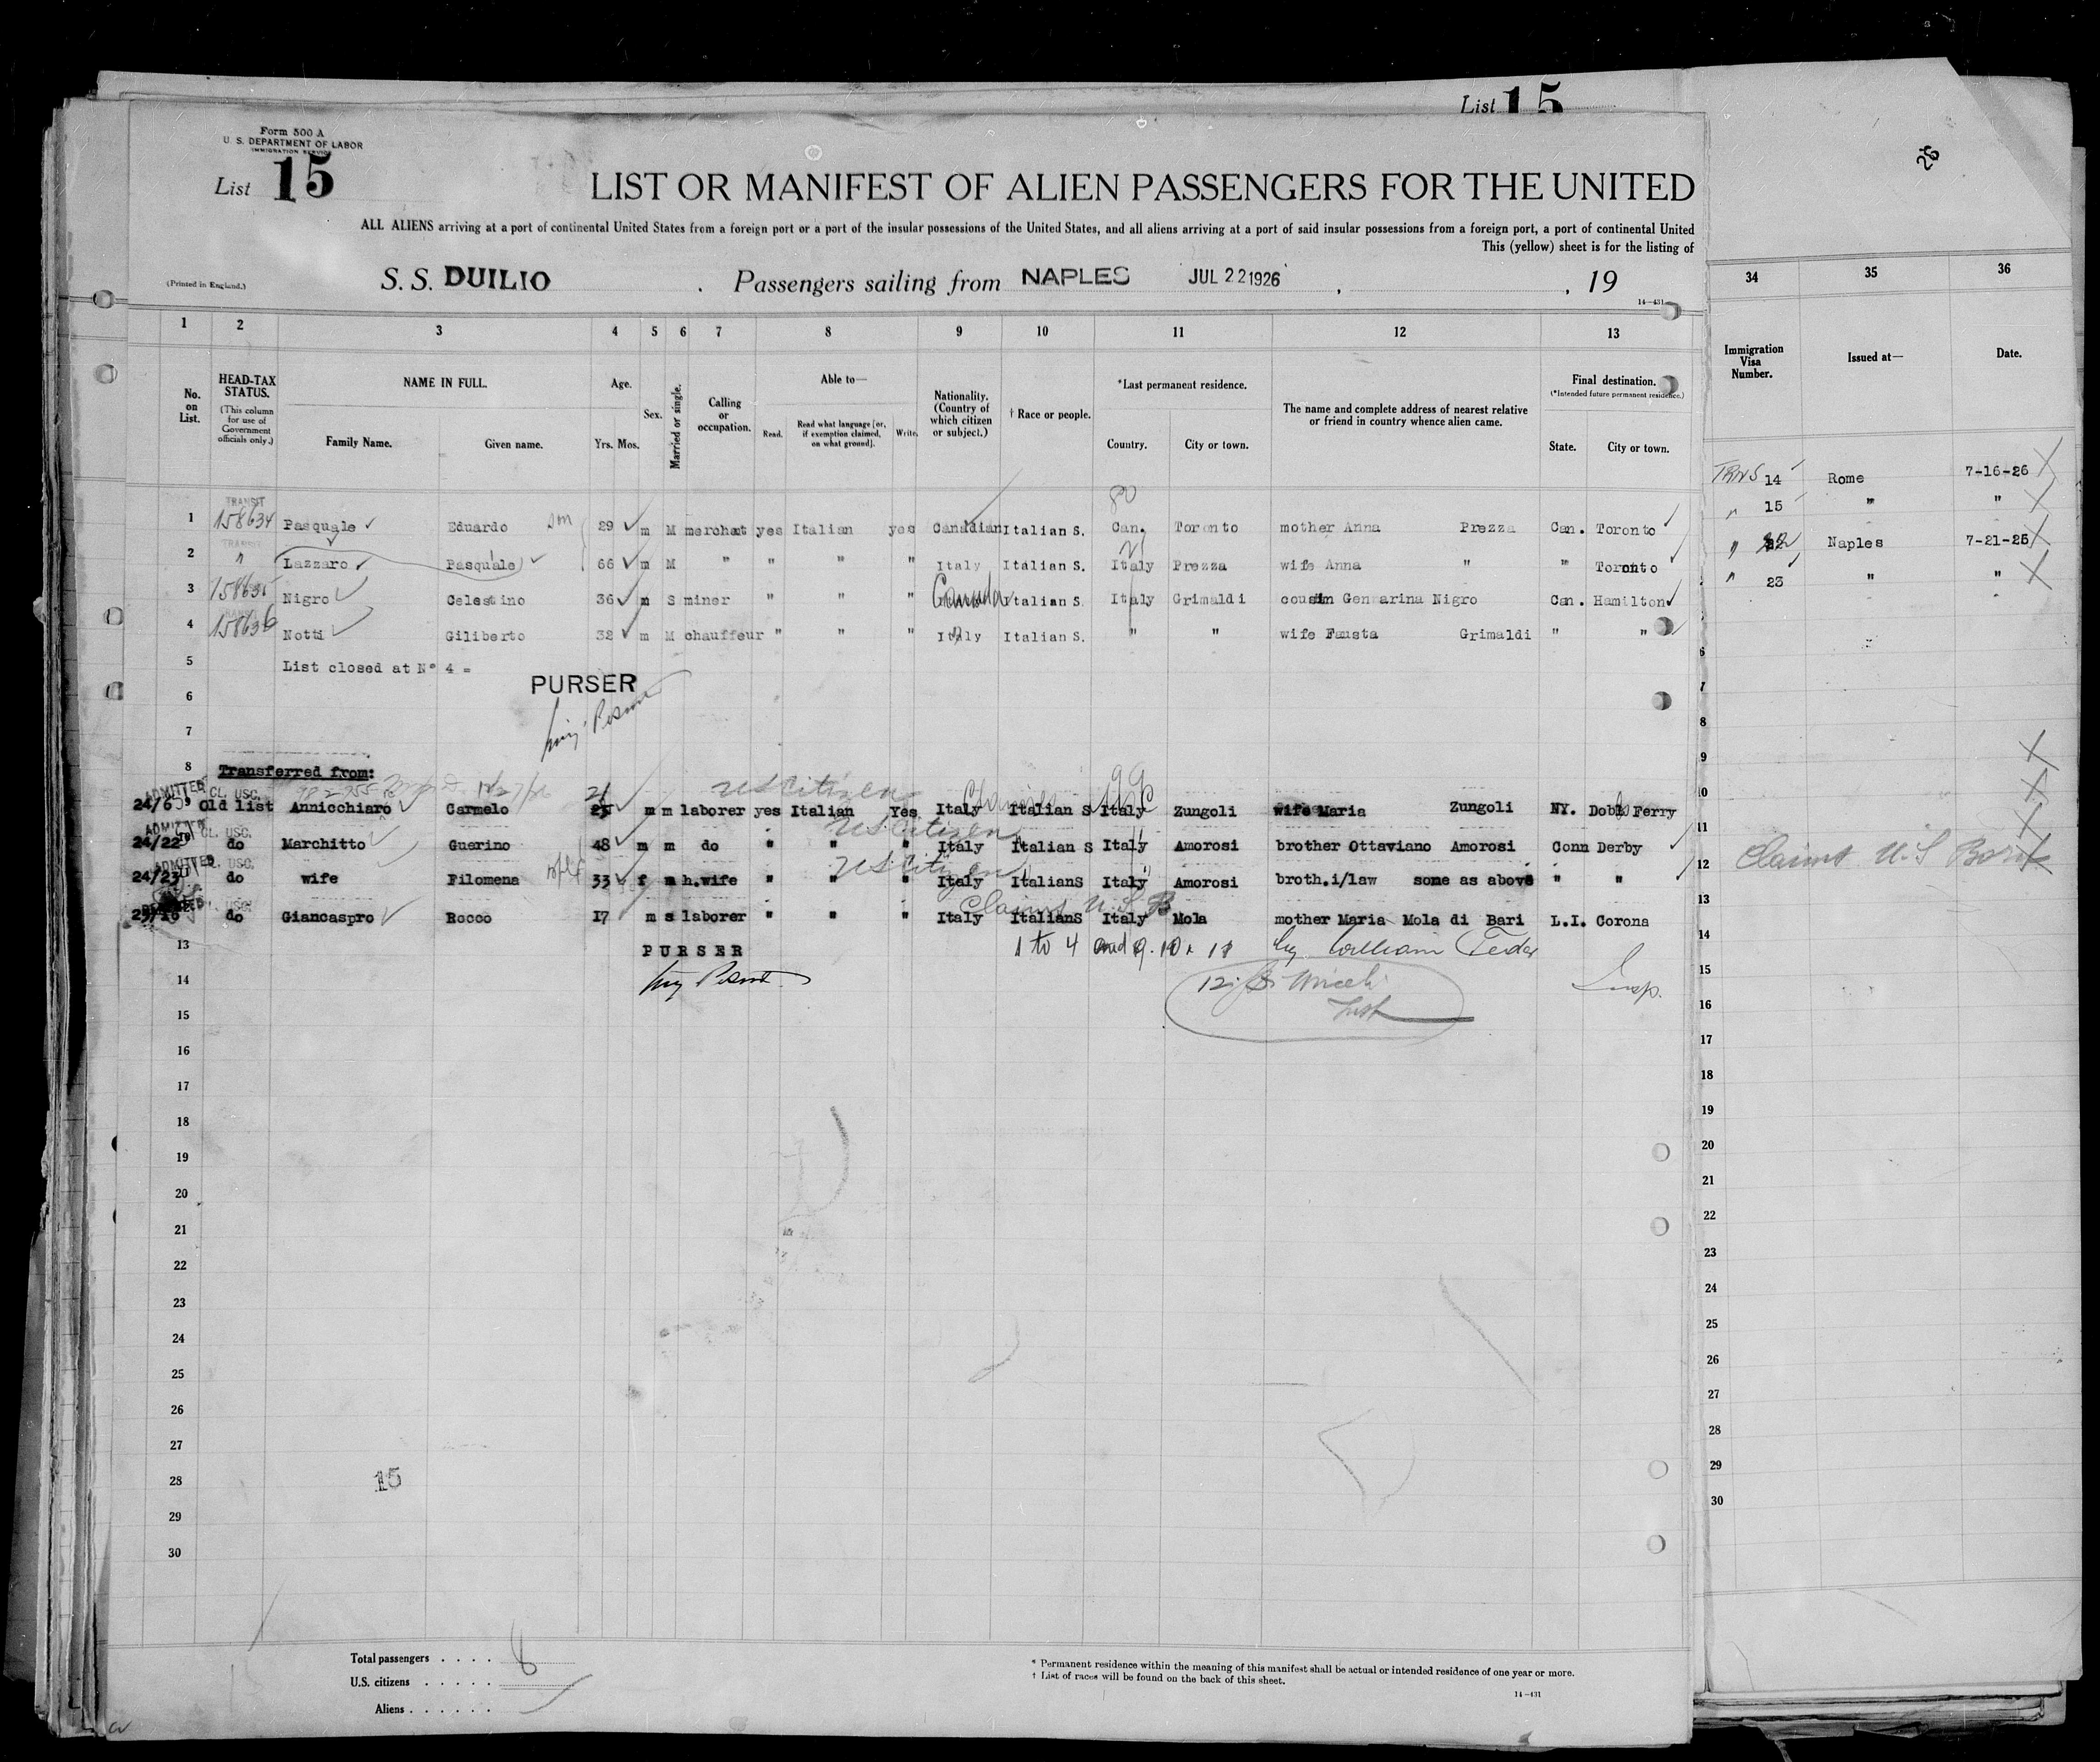 List 15
26
Form 500 A
U. S. DEPARTMENT OF LABOR
IMMIGRATION SERVICE
List 15
LIST OR MANIFEST OF ALIEN PASSENGERS FOR THE UNITED
ALL ALIENS arriving at a port of continental United States from a foreign port or a port of the insular possessions of the United States, and all aliens arriving at a port of said insular possessions from a foreign port, a port of continental United
This (yellow) sheet is for the listing of
(Printed in England.) S. S. DUILIO . Passengers sailing from NAPLES JUL 22 1926 , , 19
14—431
1 2 3 4 5 6 7 8 9 10 11 12 13 34 35 36
No. on List.
HEAD-TAX STATUS.
(This column for use of Government officials only.)
NAME IN FULL.
Family Name. Given name.
Age.
Yrs. Mos.
Sex.
Married or single.
Calling or occupation.
Able to—
Read. Read what language [or, if exemption claimed, on what ground]. Write.
Nationality. (Country of which citizen or subject.)
† Race or people.
*Last permanent residence.
Country. City or town.
The name and complete address of nearest relative or friend in country whence alien came.
Final destination.
(*Intended future permanent residence.)
State. City or town.
Immigration Visa Number. Issued at— Date.
TRANSIT
1 158634 Pasquale Eduardo 29 m M merchat yes Italian yes Canadian Italian S. Can. Toronto mother Anna Prezza Can. Toronto
TRNS 14 Rome 7-16-26
2 " Lazzaro Pasquale 66 m M " " " " Italy Italian S. Italy Prezza wife Anna " " Toronto
" 15 " "
3 158635 Nigro Celestino 36 m S miner " " " Canada Italian S. Italy Grimaldi cousin Gennarina Nigro Can. Hamilton
" 22 Naples 7-21-26
4 158636 Notti Giliberto 32 m M chauffeur " " " Italy Italian S. " " wife Fausta Grimaldi " "
" 23 " "
5 List closed at N° 4 =
6 PURSER
7
8 Transferred from:
US Citizen
ADMITTED CL. USC.
24/6 Old list Annicchiaro Carmelo m m laborer yes Italian Yes Italy Italian S Italy Zungoli wife Maria Zungoli NY. Dobb Ferry
US Citizen
ADMITTED CL. USC.
24/22 do Marchitto Guerino 48 m m do " " " Italy Italian S Italy Amorosi brother Ottaviano Amorosi Conn Derby
US Citizen
ADMITTED USC.
24/23 do wife Filomena 33 f m h.wife " " " Italy ItalianS Italy Amorosi broth.i/law some as above " "
Claims U.S B
Claims U.S Born
do Giancaspro Rocco 17 m s laborer " " " Italy ItalianS Italy Mola mother Maria Mola di Bari L.I. Corona
13 PURSER 1 to 4 and 9. 10 & 11 by William
14 12. Insp.
15
16
17
18
19
20
21
22
23
24
25
26
27
28 15
29
30
6
7
8
9
10
11
12
13
14
15
16
17
18
19
20
21
22
23
24
25
26
27
28
29
30
Total passengers . . . . 8
U.S. citizens . . . . .
Aliens . . . . . .
* Permanent residence within the meaning of this manifest shall be actual or intended residence of one year or more.
† List of races will be found on the back of this sheet.
14—431